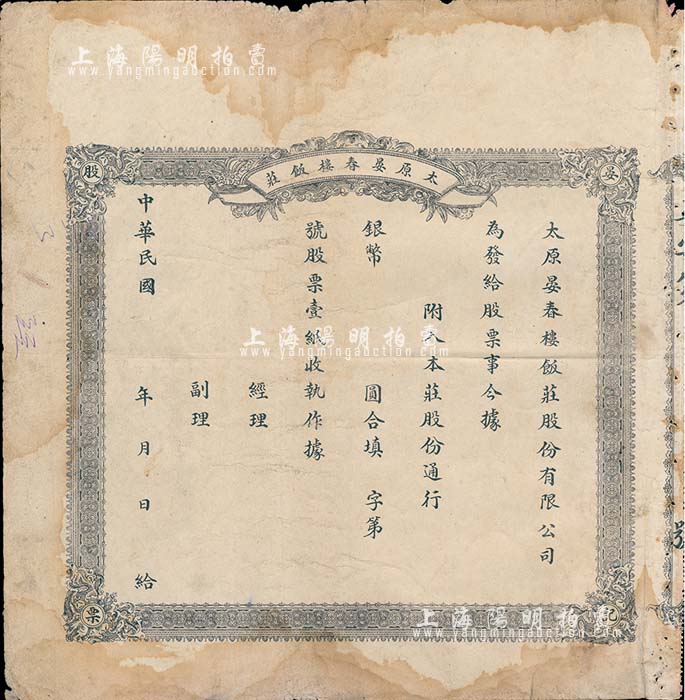 上海陽明拍賣
www.yangmingauction.com
太原晏春樓飯莊
晏
股
記
票
太原晏春樓飯莊股份有限公司
為發給股票事今據
附入本莊股份通行
銀幣 圓合填 字第
號股票壹紙收執作據
經理
副理
中華民國 年 月 日 給
上海陽明拍賣
www.yangmingauction.com
上海陽明拍賣
www.yangmingauction.com
號